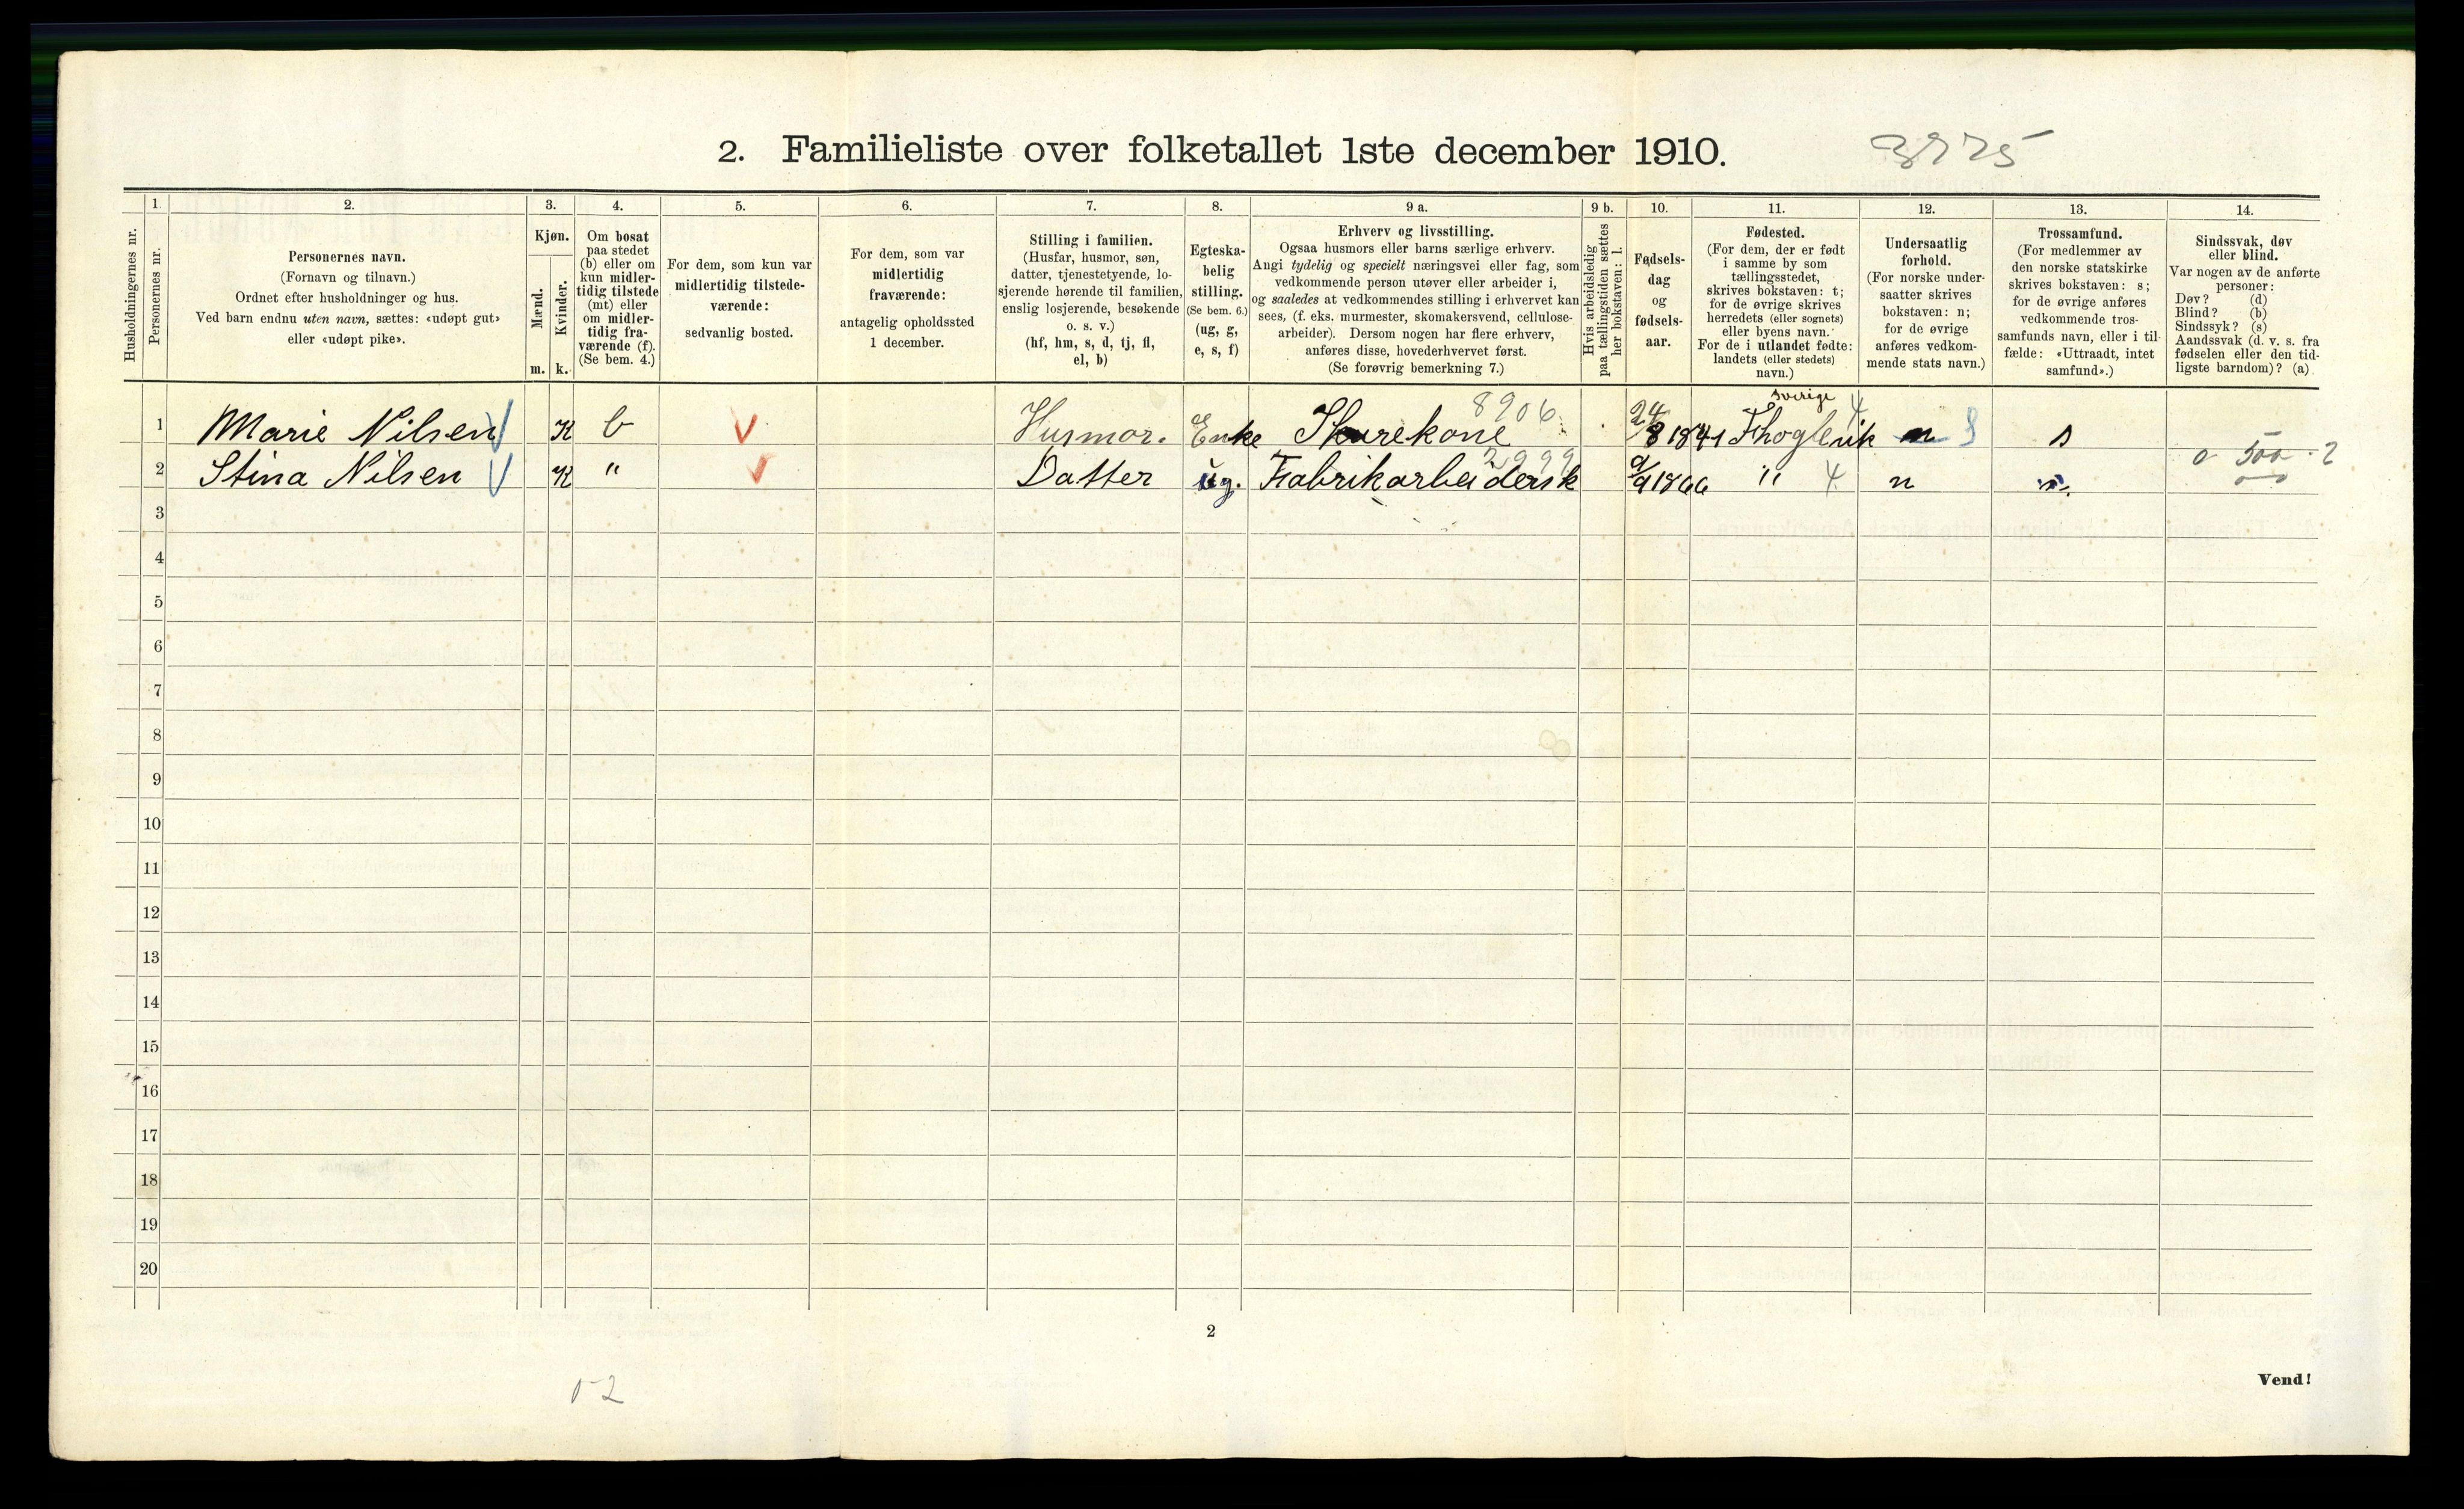 2. Familieliste over folketallet 1ste december 1910.
Husholdningernes nr.
1.
Personernes nr.
2.
Personernes navn.
(Fornavn og tilnavn.)
Ordnet efter husholdninger og hus.
Ved barn endnu uten navn, sættes: «udøpt gut»
eller «udøpt pike».
3.
Kjøn.
Mænd.
Kvinder.
m. k.
4.
Om bosat
paa stedet
(b) eller om
kun midler-
tidig tilstede
(mt) eller
om midler-
tidig fra-
værende (f).
(Se bem. 4.)
5.
For dem, som kun var
midlertidig tilstede-
værende:
sedvanlig bosted.
6.
For dem, som var
midlertidig
fraværende:
antagelig opholdssted
1 december.
7.
Stilling i familien.
(Husfar, husmor, søn,
datter, tjenestetyende, lo-
sjerende hørende til familien,
enslig losjerende, besøkende
o. s. v.)
(hf, hm, s, d, tj, fl,
el, b)
8.
Egteska-
belig
stilling.
(Se bem. 6.)
(ug, g,
e, s, f)
9 a.
Erhverv og livsstilling.
Ogsaa husmors eller barns særlige erhverv.
Angi tydelig og specielt næringsvei eller fag, som
vedkommende person utøver eller arbeider i,
og saaledes at vedkommendes stilling i erhvervet kan
sees, (f. eks. murmester, skomakersvend, cellulose-
arbeider). Dersom nogen har flere erhverv,
anføres disse, hovederhvervet først.
(Se forøvrig bemerkning 7.)
9 b.
Hvis arbeidsledig
paa tællingstiden sættes
her bokstaven: l.
10.
Fødsels-
dag
og
fødsels-
aar.
11.
Fødested.
(For dem, der er født
i samme by som
tællingsstedet,
skrives bokstaven: t;
for de øvrige skrives
herredets (eller sognets)
eller byens navn.
For de i utlandet fødte:
landets (eller stedets)
navn.)
12.
Undersaatlig
forhold.
(For norske under-
saatter skrives
bokstaven: n;
for de øvrige
anføres vedkom-
mende stats navn.)
13.
Trossamfund.
(For medlemmer av
den norske statskirke
skrives bokstaven: s;
for de øvrige anføres
vedkommende tros-
samfunds navn, eller i til-
fælde: «Uttraadt, intet
samfund».)
14.
Sindssvak, døv
eller blind.
Var nogen av de anførte
personer:
Døv? (d)
Blind? (b)
Sindssyk? (s)
Aandssvak (d. v. s. fra
fødselen eller den tid-
ligste barndom)? (a)
1 Marie Nilsen K b Husmor. Enke Skurekone 8906 24/8 1841 Sverige 4 n S s
2 Stina Nilsen K " Datter ug. Fabrikarbeidersk 2999 9/9 1866 " 4 n
0 500 · 2
3
4
5
6
7
8
9
10
11
12
13
14
15
16
17
18
19
20
2
Vend!